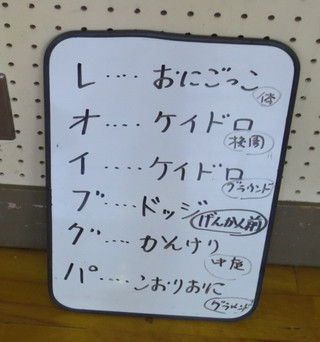 レ…‥ おにごっこ
体
オ…‥ ケイドロ
校周
イ…‥ ケイドロ
グラウンド
ブ…‥ ドッジ
げんかん前
グ…‥ かんけり
中庭
パ…‥ こおりおに
グラウンド